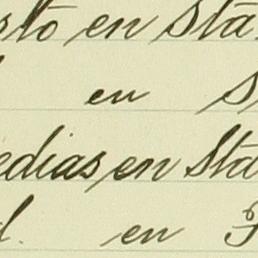 sto en Sta
en S
edias en Sta
d. en F